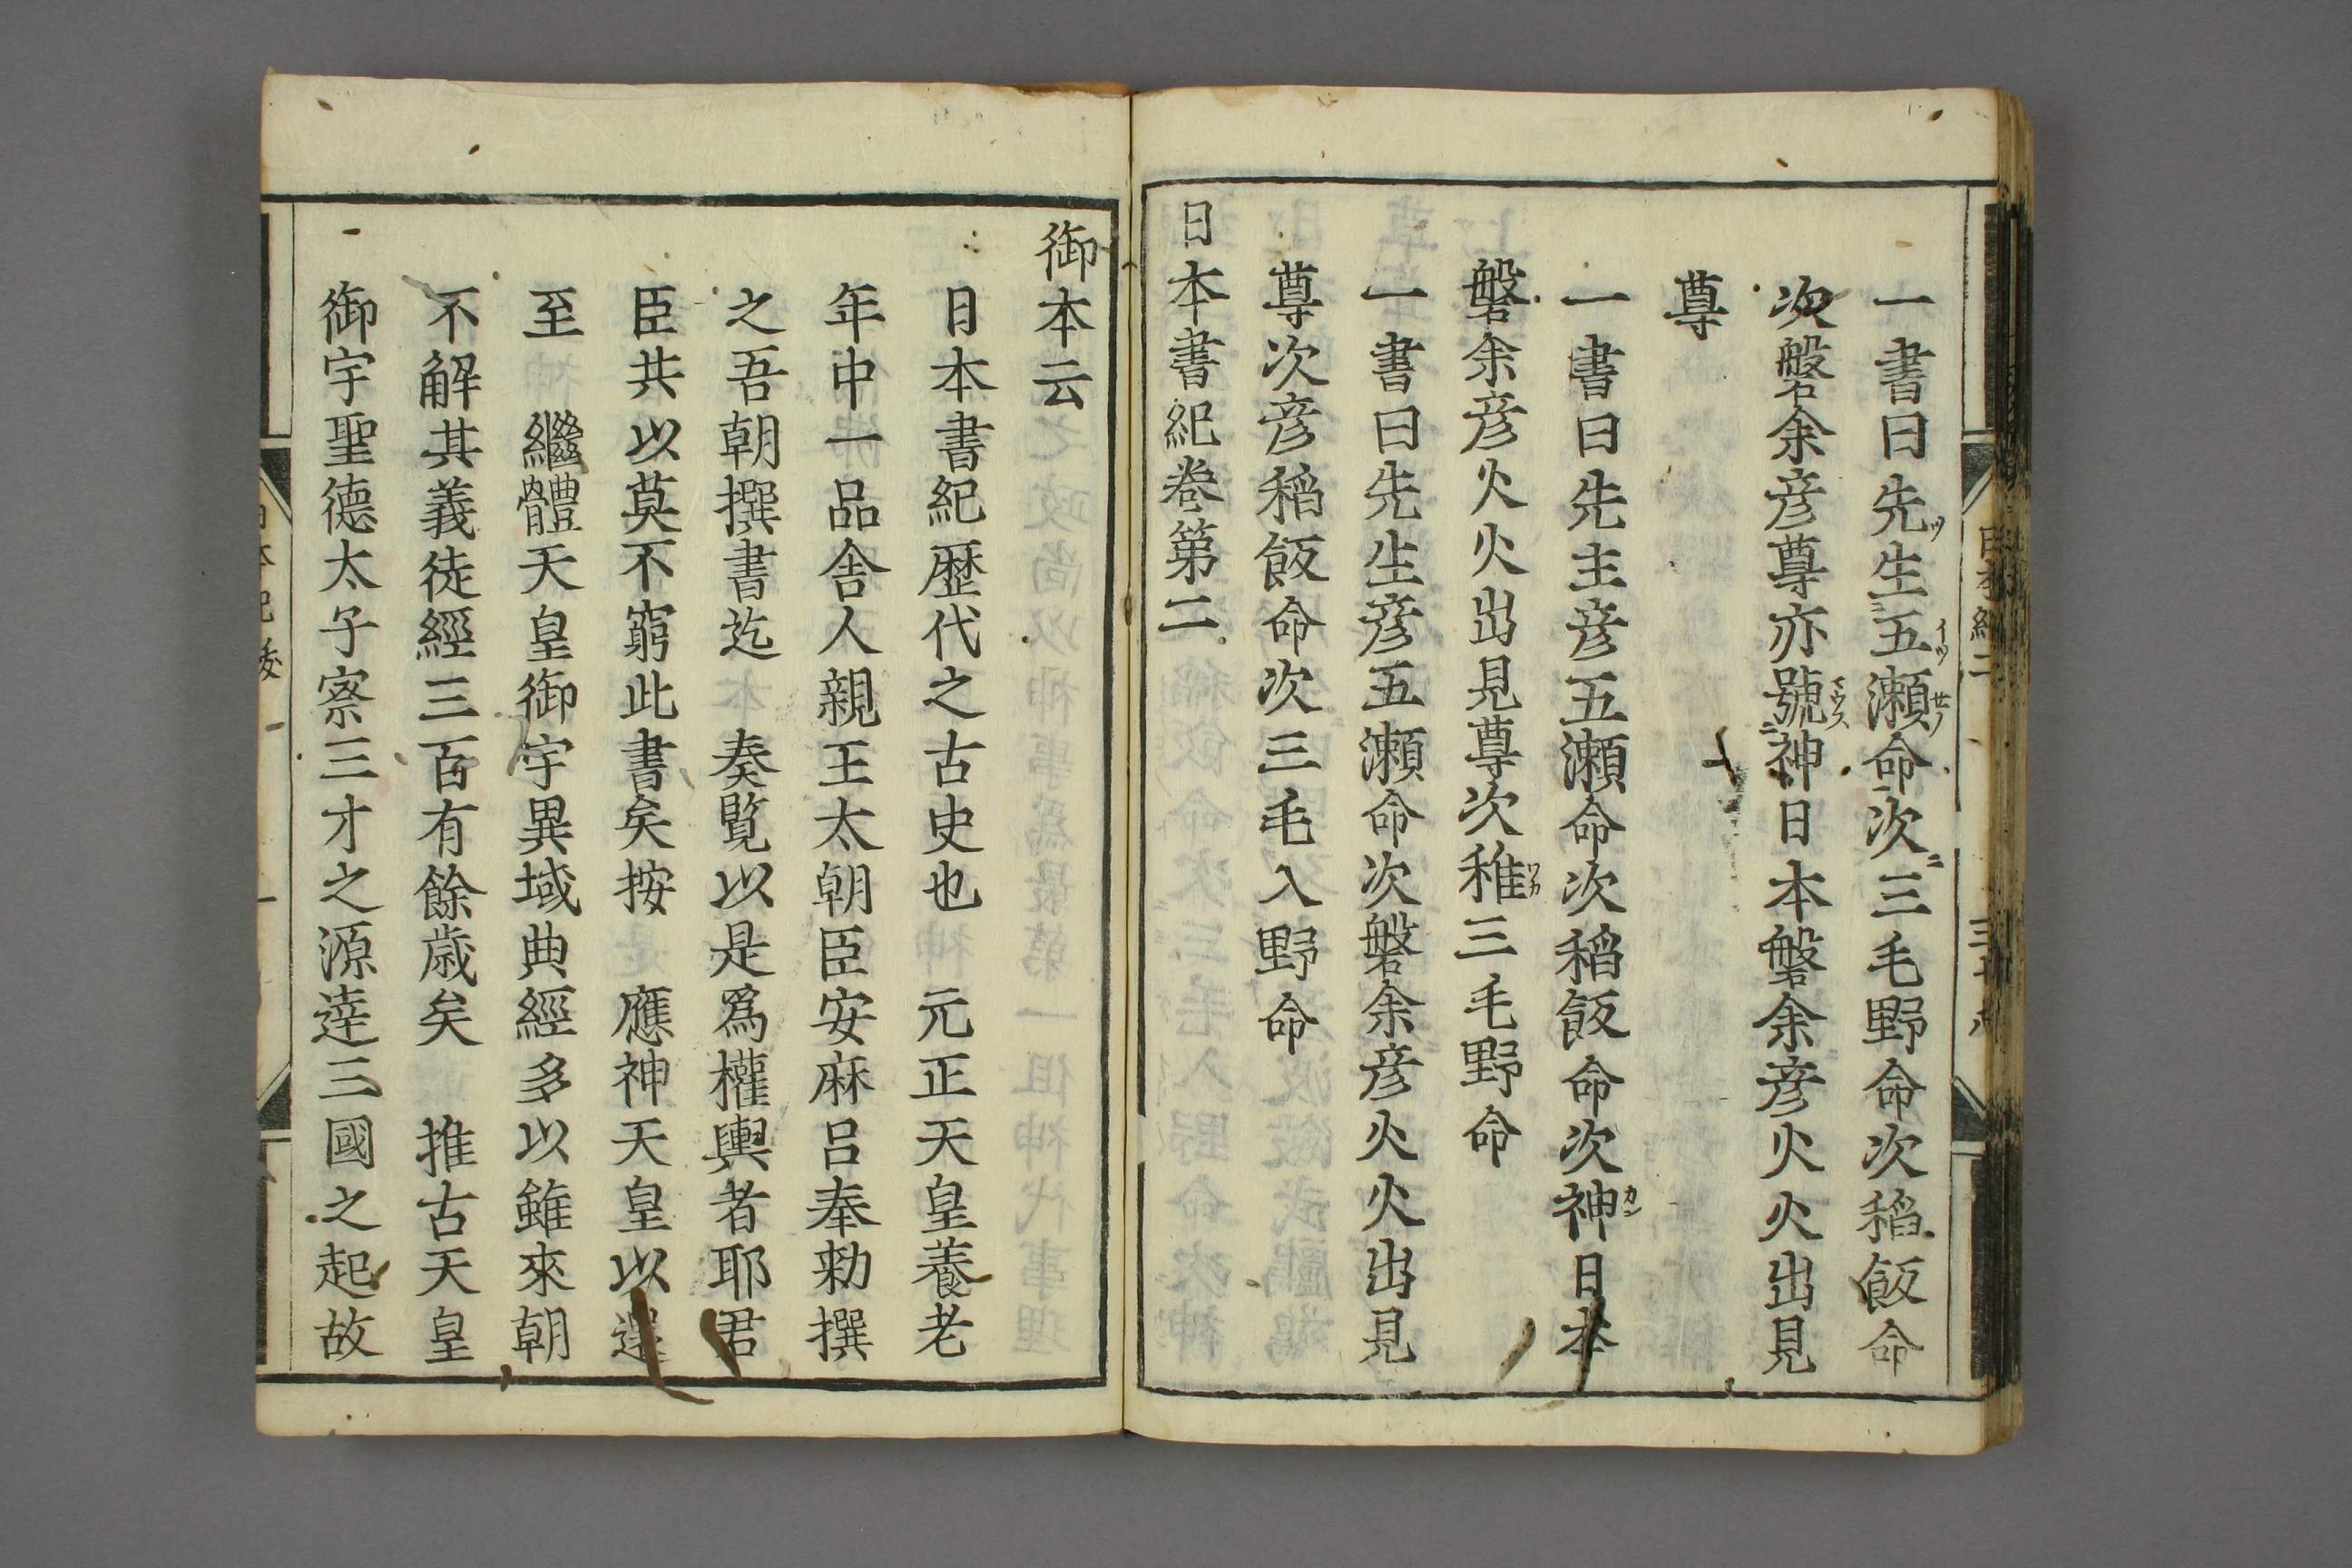 一書曰先生五瀬命次三毛野命次稻飯命
次磐余彦尊亦號神日本磐余彦火火出見
尊
一書曰先生彦五瀬命次稻飯命次神日本
磐余彦火火出見尊次稚三毛野命
一書曰先生彦五瀬命次磐余彦火火出見
尊次彦稻飯命次三毛入野命
日本書紀卷第二
御本云
日本書紀歴代之古史也　元正天皇養老
年中一品舎人親王太朝臣安麻呂奉勅撰
之吾朝撰書迄　奏覧以是爲權輿者耶君
臣共以莫不窮此書矣按　應神天皇以還
至　繼體天皇御宇異域典經多以雖來朝
不解其義徒經三百有餘歳矣　推古天皇
御宇聖德太子察三才之源達三國之起故